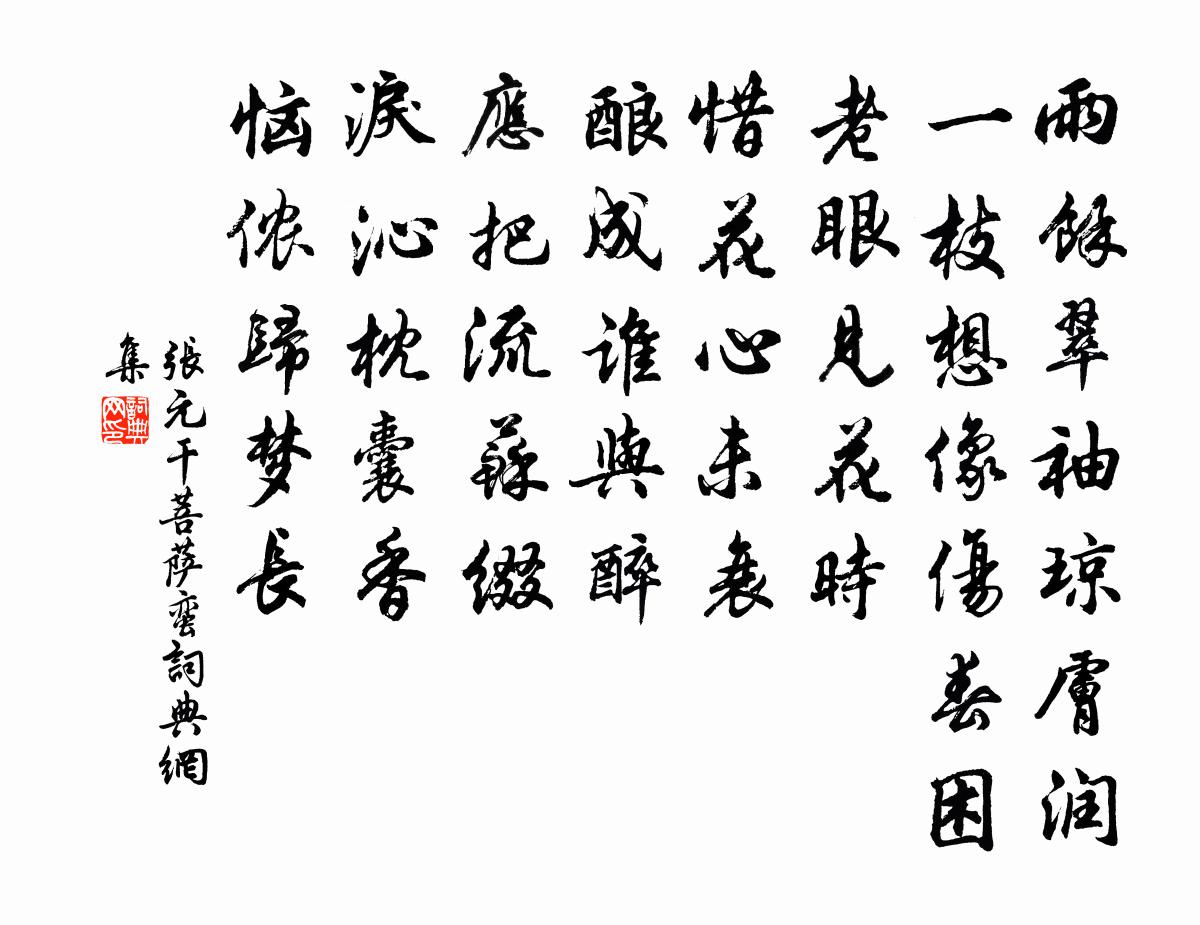 雨餘翠袖琼膚润
一枝想像傷春困
老眼見花時
惜花心未衰
酿成谁與醉
應把流蘇綴
淚沁枕囊香
恼侬歸梦長
張元干菩萨蛮詞典網
集
詞典网印